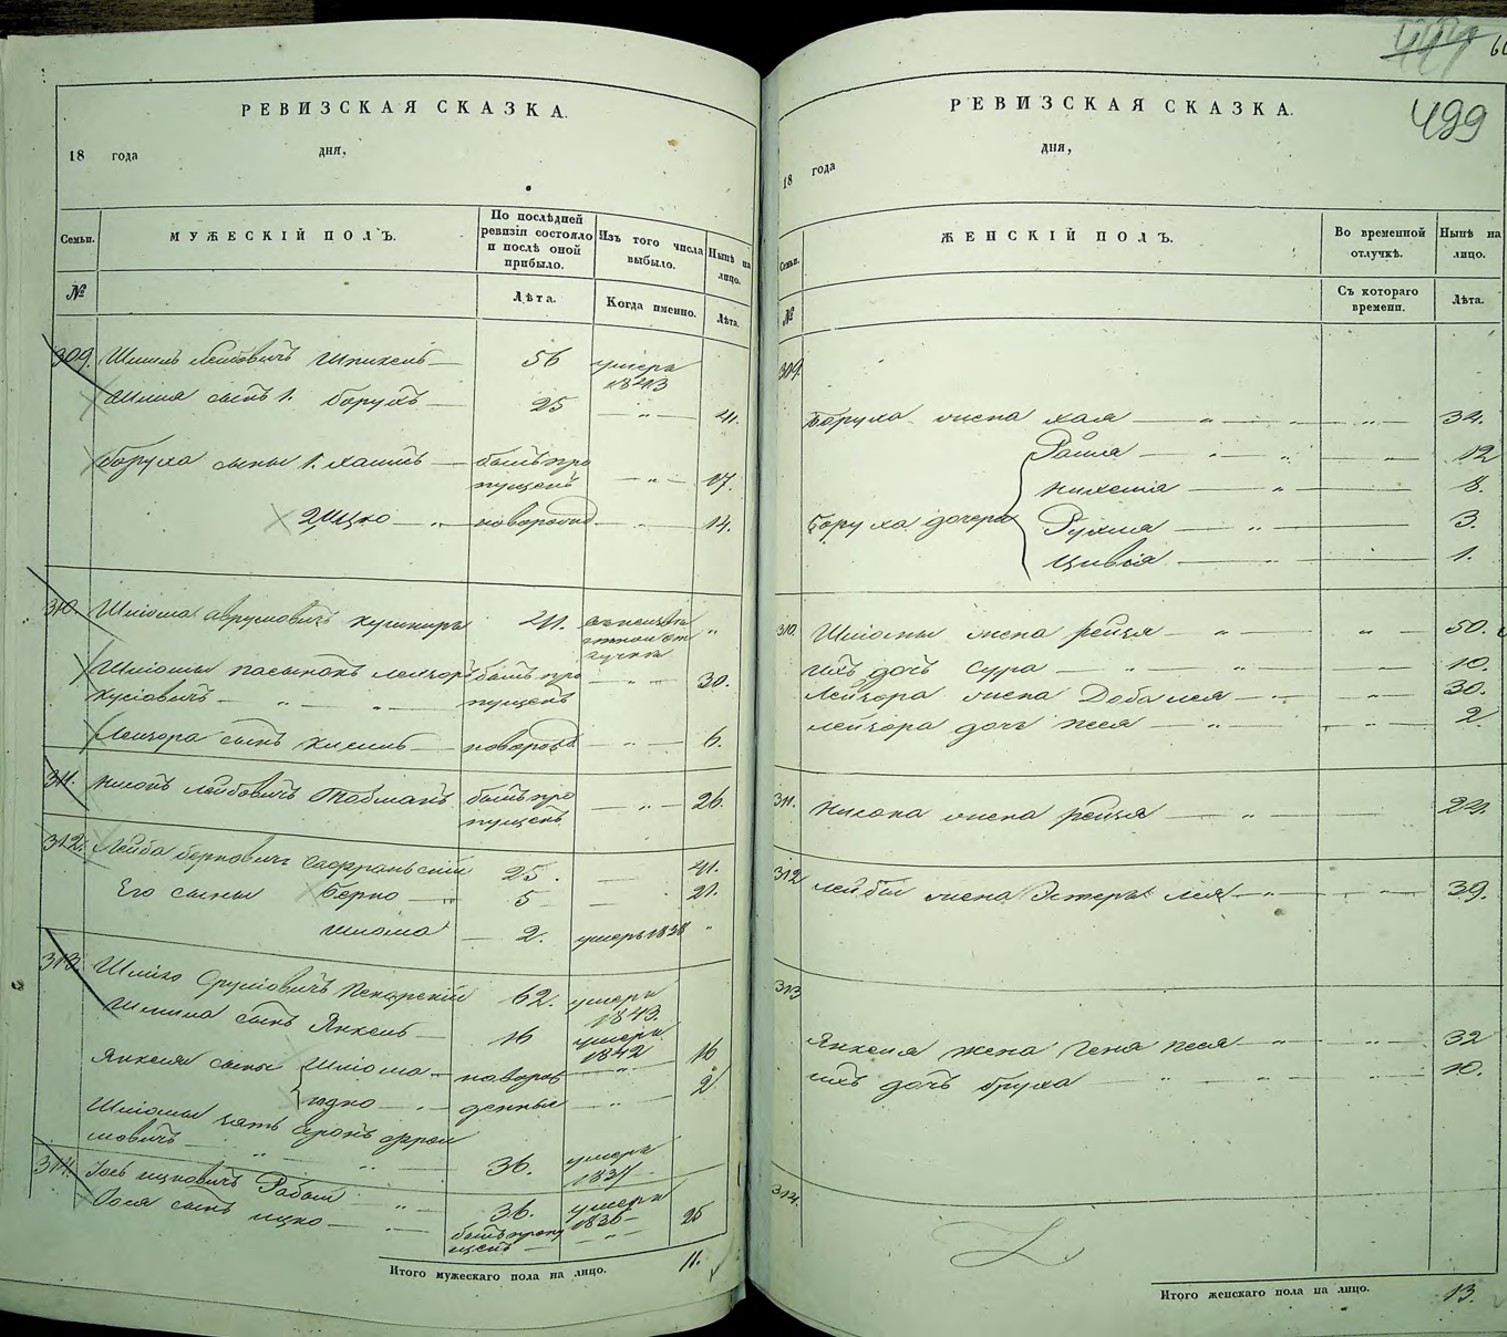 РЕВИЗСКАЯ СКАЗКА.
18 года дня,
Семьи. МУЖЕСКІЙ ПОЛЪ. По послѣдней ревизіи состояло и послѣ оной прибыло. Изъ того числа выбыло. Нынѣ на лицо.
№ Лѣта. Когда именно. Лѣта.
309. Шмиль Лейбовичъ Шпихель 56 умеръ 1843
Шмиля сынъ 1. Борухъ 25 — " — 41.
Боруха сыны 1. Хаимъ былъ пропущенъ — " — 17.
2 Ицко — " новорожд. — " — 14.
310. Шліома Аврумовичъ Кушниръ 41. "
Шліомы пасынокъ Лейзоръ былъ про — " — 30.
Кусіовичъ — " — " — пущенъ
Лейзора сынъ Хиль новорожд — " — 6.
311. Нисонъ Лейбовичъ Тобманъ былъ пропущенъ — " — 26.
312. Лейба Берковичъ 25. — 41.
Его сыны Берко — " 5 — 21.
Шліома — 2. умеръ 1838 "
313. Шмилъ Сруліовичъ Пекарскій 62. умеръ 1843.
Шмиля сынъ Янкель — 16 умеръ 1842
Янкеля сыны Шліома — новорож — " — 16
Юдко — " денные — " — 2
Шліомы зять Аронъ
мовичъ — " — " — 36. умеръ 1837
314. Іось Ицковичъ Рабой — " — 36. умеръ 1836
Іося сынъ Ицко — " — былъ пропущенъ — " — 25
Итого мужескаго пола на лицо. 11.
499
РЕВИЗСКАЯ СКАЗКА.
18 года дня,
Семьи. ЖЕНСКІЙ ПОЛЪ. Во временной отлучкѣ. Нынѣ на лицо.
№ Съ котораго времени. Лѣта.
309.
Боруха жена Хая — " — " — " — 34.
Рейзя — " — " — " — 12
Нихемія — " — 8.
Боруха дочери Рухля — " — 3.
Цивія — " — 1.
310. Шліомы жена Рейзя — " — " — 50.
ихъ дочь Сура — " — " — " — 10.
Лейзора жена Доба Лея — " — " — 30.
Лейзора дочь Песя — " — " — 2.
311. Нисона жена Рейзя — " — 24.
312 Лейбы жена Эстеръ Лея — " — " — 39.
313
Янкеля жена Геня Песя — " — " — 32
ихъ дочь Бруха — " — " — " — 10.
314.
Итого женскаго пола на лицо. 13.